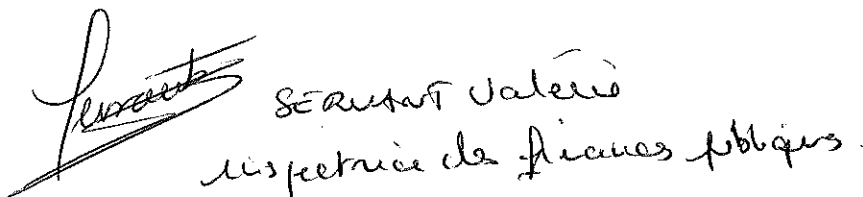 SERVANT Valérie
Inspectrice des finances publiques.